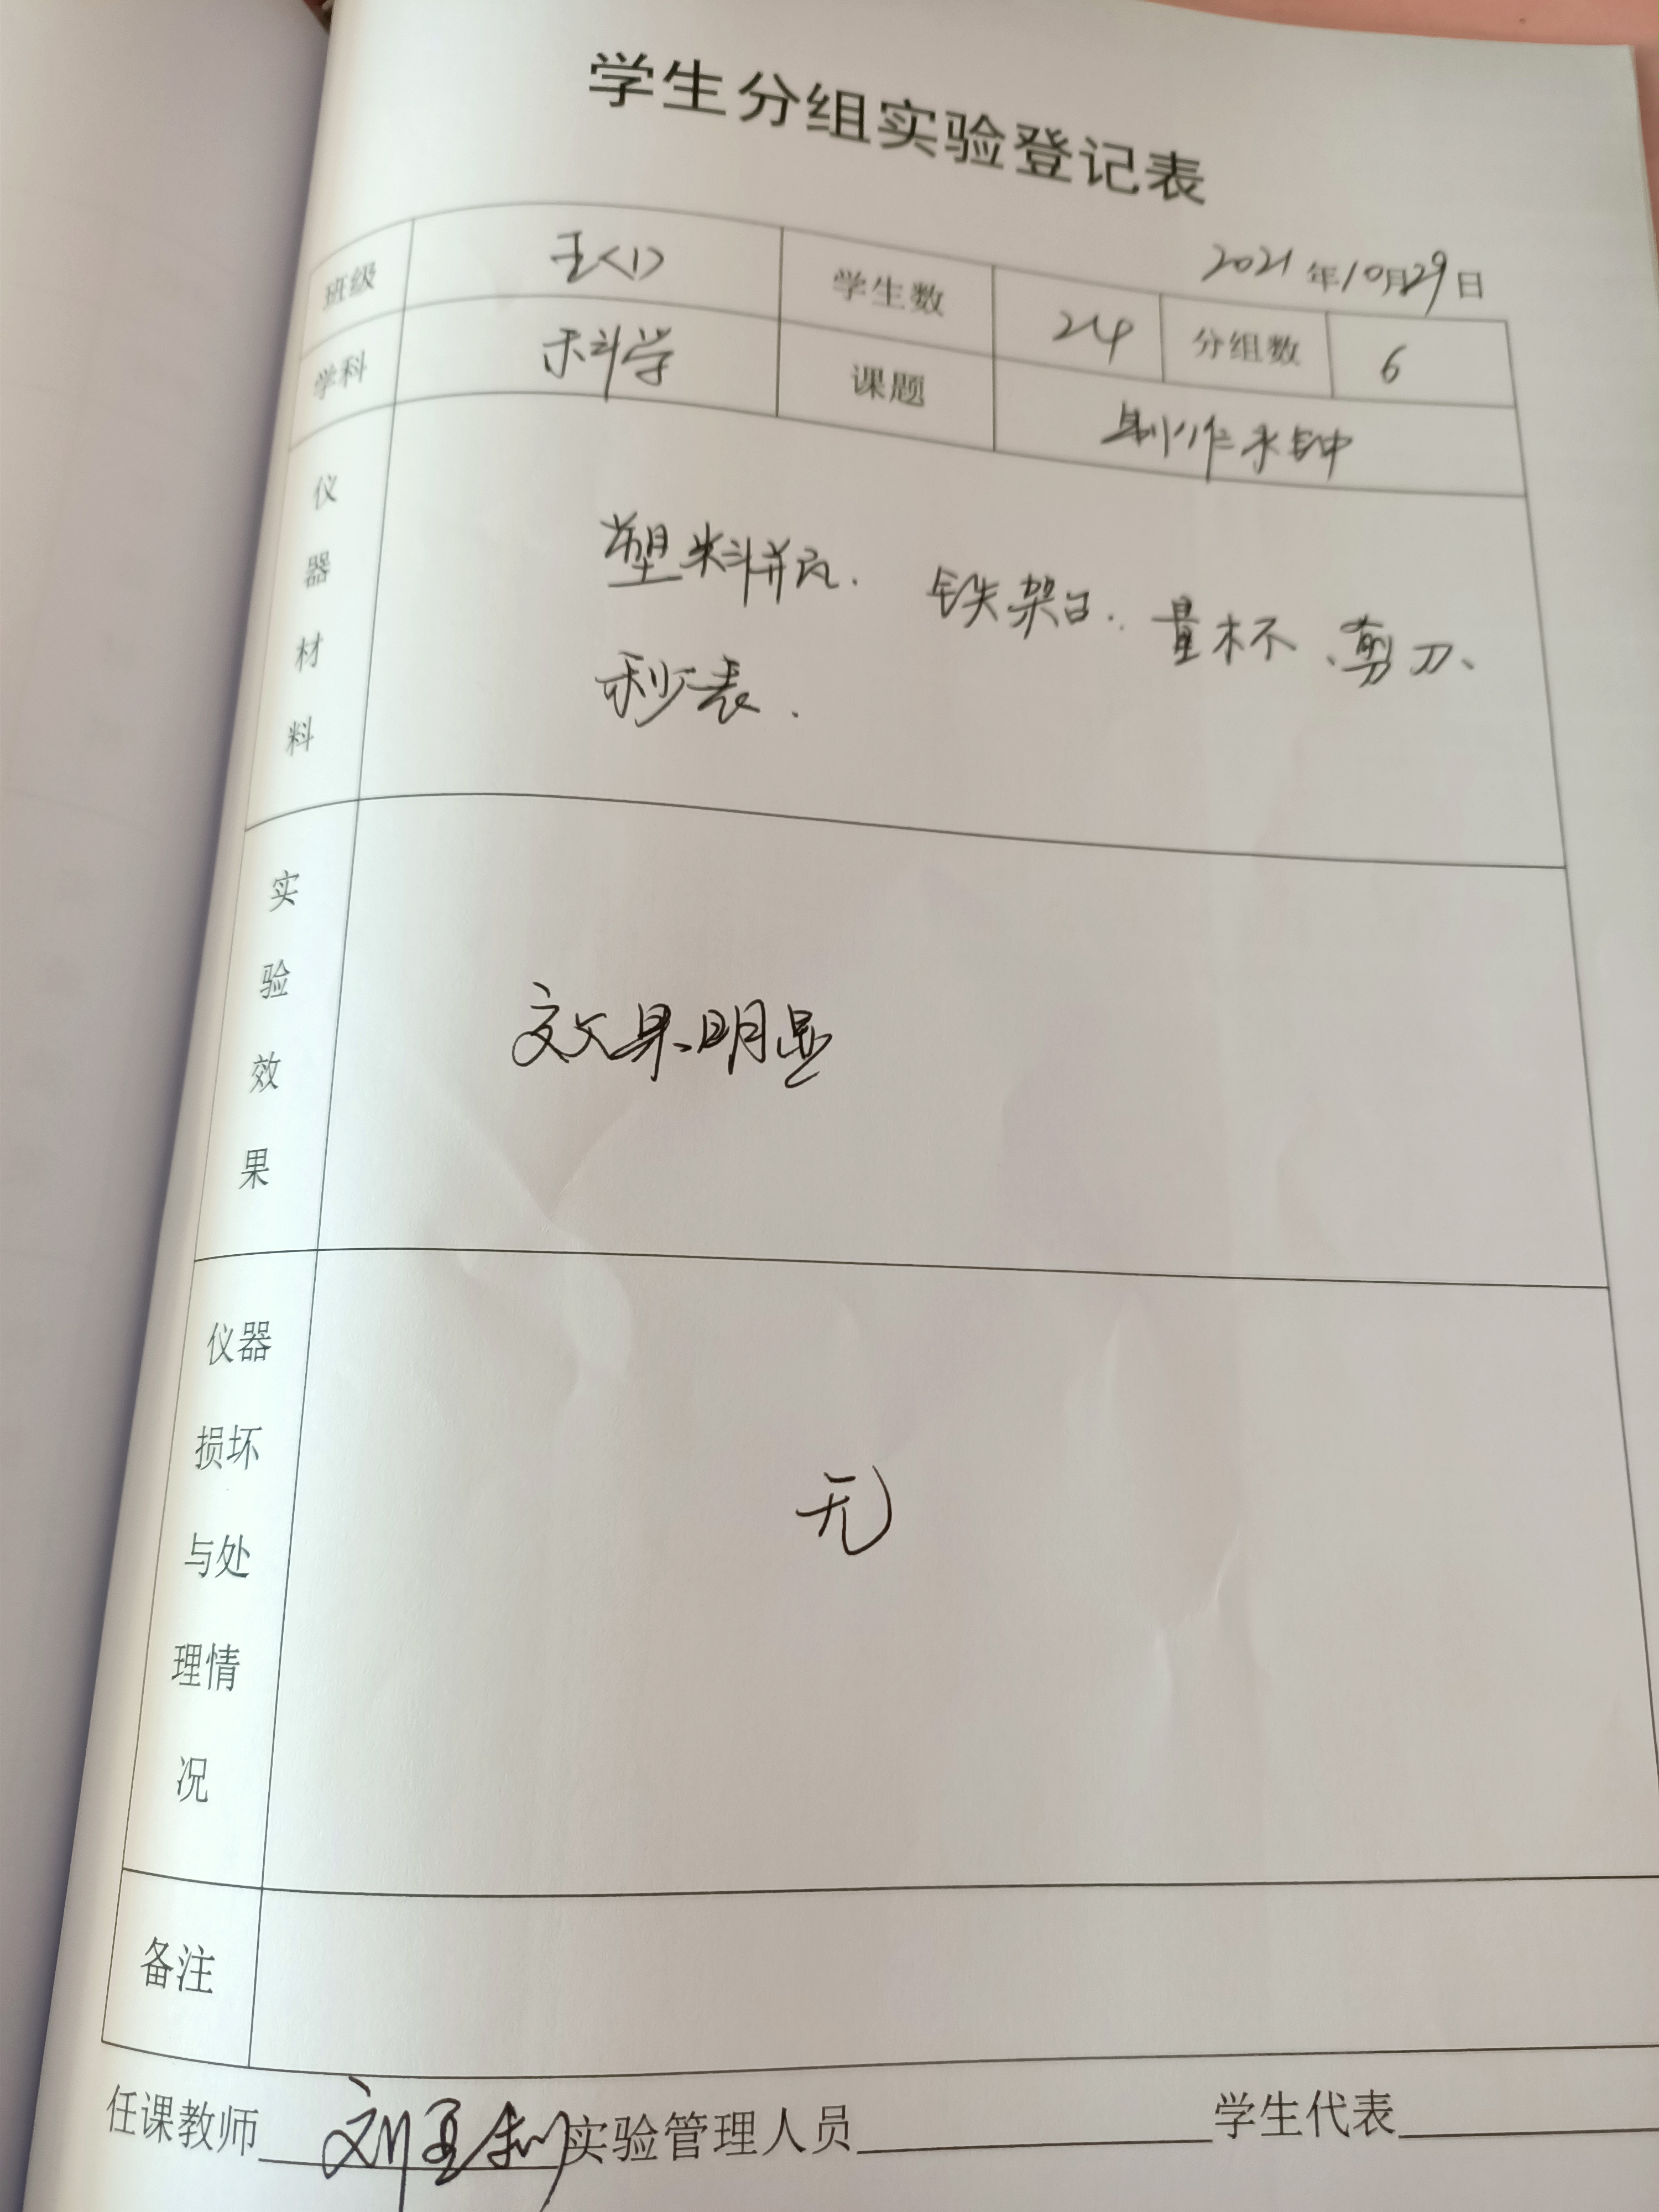 学生分组实验登记表
2021年10月29日
班级 五<1> 学生数 24 分组数 6
学科 科学 课题 制作水钟
仪器材料 塑料瓶、铁架台、量杯、剪刀、
秒表.
实验效果 效果明显
仪器
损坏
与处
理情
况 无
备注
任课教师 刘 利 实验管理人员 学生代表